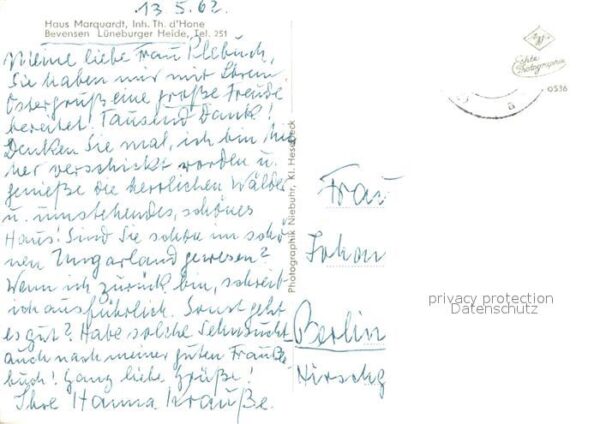 13.5.62.
Haus Marquardt, Inh. Th. d'Hone
Bevensen Lüneburger Heide, Tel. 251
Meine liebe Frau
Sie haben mir mit Ihrem
Ostergruß eine große Freude
bereitet. Tausend Dank!
Denken Sie mal, ich bin hie
her verschickt worden u.
genieße die herrlichen Wälder
u. umstehendes, schönes
Haus! Sind Sie schon im schö
nen Ungarland gewesen?
Wenn ich zurück bin, schreib
ich ausführlich. Sonst geht
es gut? Habe solche Sehnsucht
auch nach meiner guten Frau
buch! Ganz liebe Grüße!
Ihre Hanna Krauße.
Photographik Niebuhr, Kl. Hesebeck
Echte
Photographie
0536
a
Frau
Johan
Berlin
Hirschg
privacy protection
Datenschutz